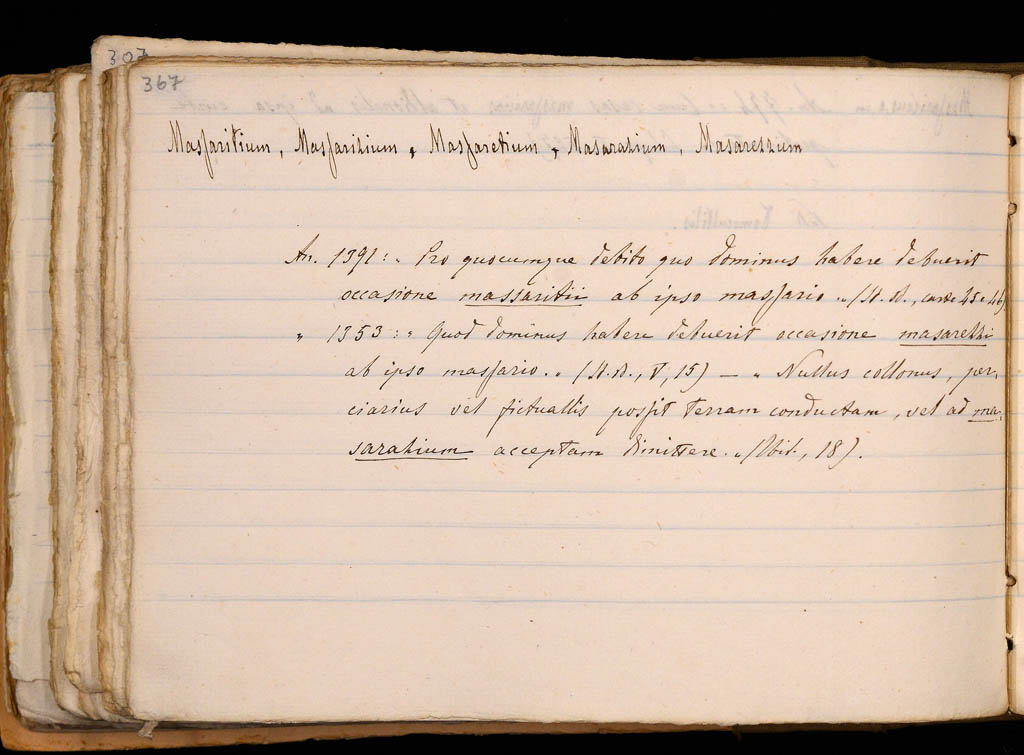 307
367
Massaritium, Massarizium, Massaretium, Masarazium, Masarezzum
An. 1391: „ Pro quocumque debito quo dominus habere debuerit
occasione massaritii ab ipso massario „ (St. B., carte 45 e 46)
„ 1353: „ Quod dominus habere debuerit occasione masarezzi
ab ipso massario. „ (St. B., V, 15) — „ Nullus collonus, per-
ciarius vel fictuallis possit terram conductam, vel ad ma-
sarazium acceptam dimittere. „ (Ibid., 18).